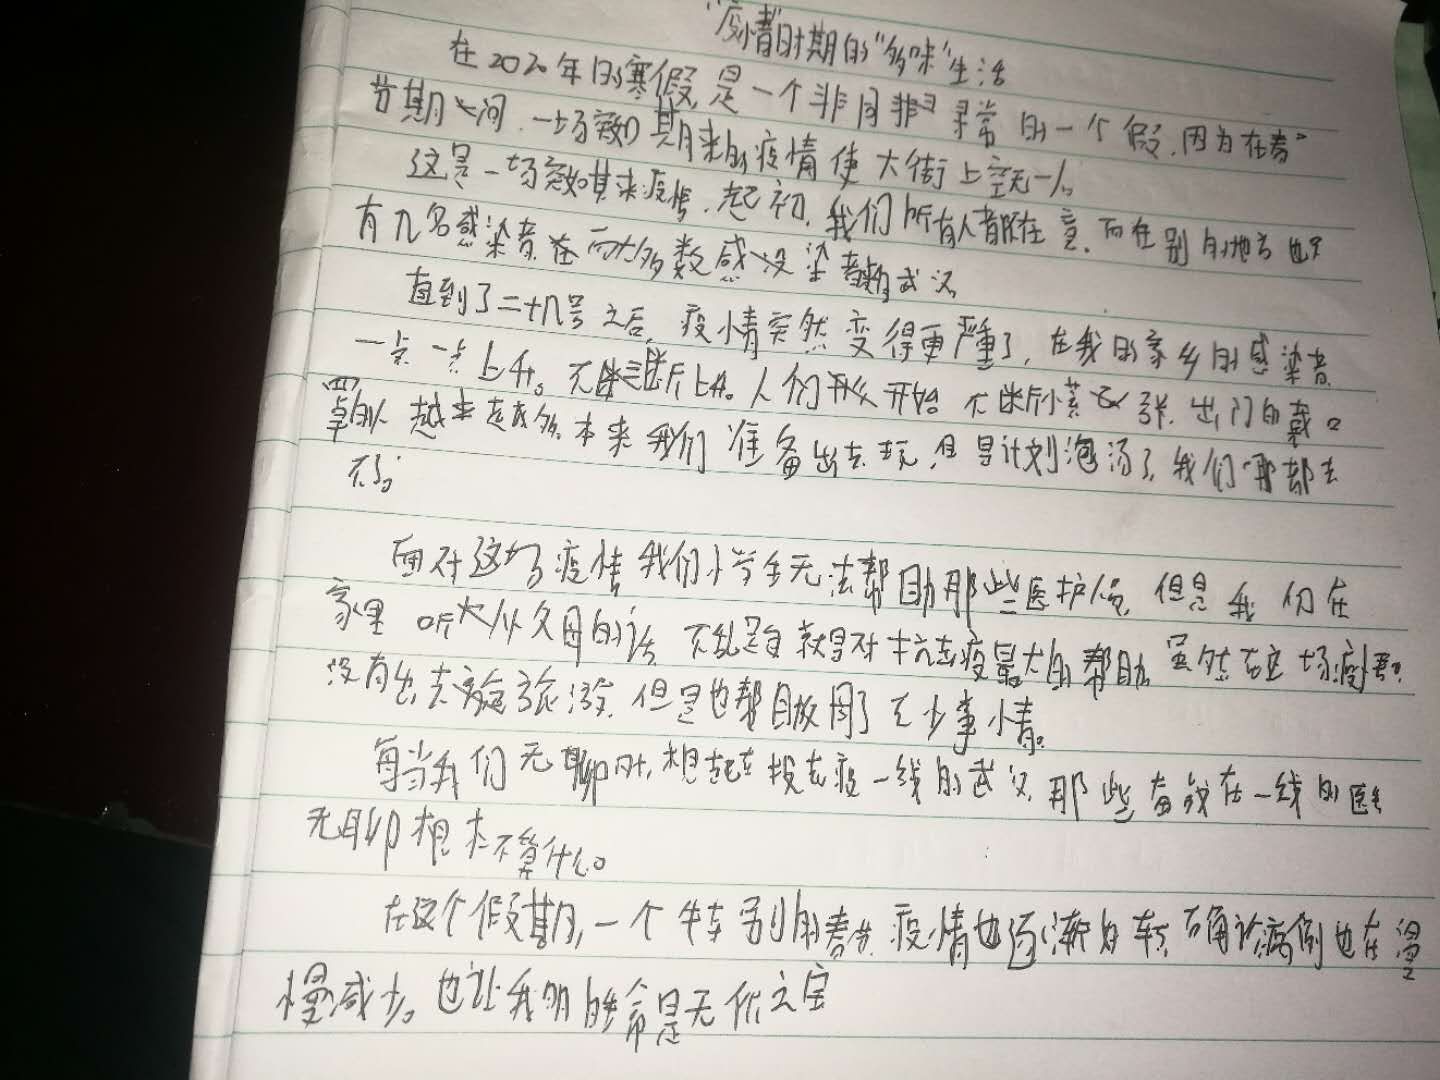 "疫情"时期的"多味"生活
在2020年的寒假,是一个非同非寻常的一个假,因为在春
节期之间,一场突如期来的疫情使大街上空无一人。
这是一场突如其来疫情,起初,我们所有人都在意,而在别的地方也只
有几名感染者,在而大多数感没染者都有武汉
直到了二十几号之后,疫情突然变得更严重了,在我的家乡的感染者
一点一点上升。不断上升。人们开始不断紧张,出门的戴口
罩的人越来越多。本来我们准备出去玩,但是计划泡汤了,我们哪都去
不了。
面对这场疫情我们小学生无法帮助那些医护人员,但是我们在
家里听大人父母的话,不乱走就是对抗击疫最大的帮助,虽然在这场疫情
没有出去旅游,但是也帮助了不少事情。
每当我们无聊时,想起在抗击疫一线的武汉,那些奋战在一线的医生
无聊根本不算什么。
在这个假期,一个特别的春节,疫情也逐渐好转,确诊病例也在慢
慢减少。也让我明白生命是无价之宝